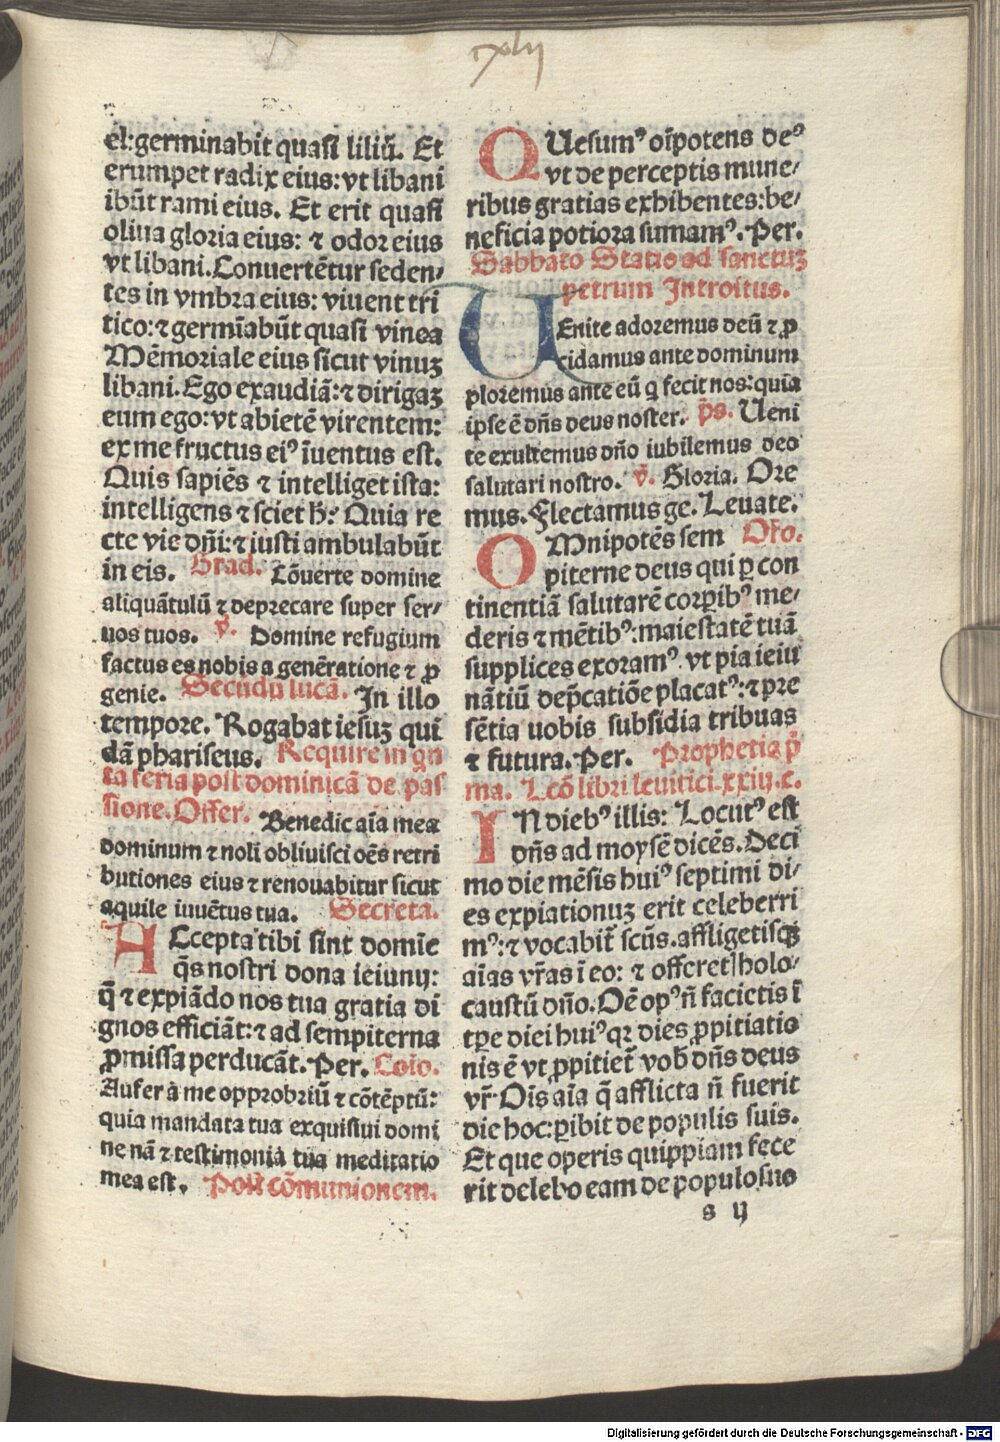 el:germinabit quasi liliū. Et
erumpet radix eius: vt libani
ibūt rami eius. Et erit quasi
oliua gloria eius: ⁊ odor eius
vt libani. Conuertētur seden⸗
tes in vmbra eius: viuent tri
tico: ⁊ germīabūt quasi vinea
Mēmoriale eius sicut vinuꝫ
libani. Ego exaudiā: ⁊ dirigaꝫ
eum ego: vt abietē virentem:
ex me fructus eiꝰ īuentus est.
Quis sapiēs ⁊ intelliget ista:
intelligens ⁊ sciet h̄: Quia re
cte vie dn̄i: ⁊ iusti ambulabūt
in eis. Grad. Cōuerte domine
aliquātulū ⁊ deprecare super ser⸗
uos tuos. ℣. Domine refugium
factus es nobis a genēratione ⁊ ꝓ
genie. Secūdū lucā. In illo
tempore. Rogabat iesuꝫ qui
dā phariseus. Require in qn
ta feria post dominicā de pas
sione. Offer. Benedic aīa mea
dominum ⁊ noli obliuisci oēs retri
butiones eius ⁊ renouabitur sicut
aquile iuuētus tua. Secreta.
ACcepta tibi sint domīe
q̄s nostri dona ieiunij:
q̄ ⁊ expiādo nos tua gratia di
gnos efficiāt: ⁊ ad sempiterna
ꝓmissa perducāt. Per. Cōio.
Aufer a me opprobriū ⁊ cōtēptū:
quia mandata tua exquisiui domi
ne nā ⁊ testimonia tua meditatio
mea est. Post cōmunionem.
cxlij
QUesumꝰ oīpotens deꝰ
vt de perceptis mune⸗
ribus gratias exhibentes: be⸗
neficia potiora sumamꝰ. Per.
Sabbato Statio ad sanctuꝫ
petrum Introitus.
UEnite adoremus deū ⁊ ꝓ
cidamus ante dominum
ploremus ante eū q fecit nos: quia
ipse ē dn̄s deus noster. p̄s. Ueni
te exultemus dn̄o iubilemus deo
salutari nostro. ℣. Gloria. Ore
mus. Flectamus ge. Leuate.
OMnipotēs sem Oꝛo.
piterne deus qui ꝑ con
tinentiā salutarē corꝑibꝰ me⸗
deris ⁊ mētibꝰ: maiestatē tuā
supplices exoramꝰ. vt pia ieiu
nātiū dep̄catiōe placatꝰ: ⁊ pre
sētia nobis subsidia tribuas
⁊ futura. Per. Prophetia p̄
ma. Lcō libri leuitici. xxiij. c.
IN diebꝰ illis: Locutꝰ est
dn̄s ad moysē dicēs. Deci
mo die mēsis huiꝰ septimi di⸗
es expiationuꝫ erit celeberri
mꝰ: ⁊ vocabit̄ scūs. affligetisqꝫ
aīas vr̄as ī eo: ⁊ offeret holo⸗
caustū dn̄o. Oē opꝰ n̄ facietis ī
tp̄e diei huiꝰ qꝛ dies ꝓpitiatio
nis ē vt ꝓpitiet̄ vob̄ dn̄s deus
vr̄. Ois aīa q̄ afflicta n̄ fuerit
die hoc: ꝑibit de populis suis.
Et que operis quippiam fece
rit delebo eam de populo suo
s ij
Digitalisierung gefördert durch die Deutsche Forschungsgemeinschaft - DFG